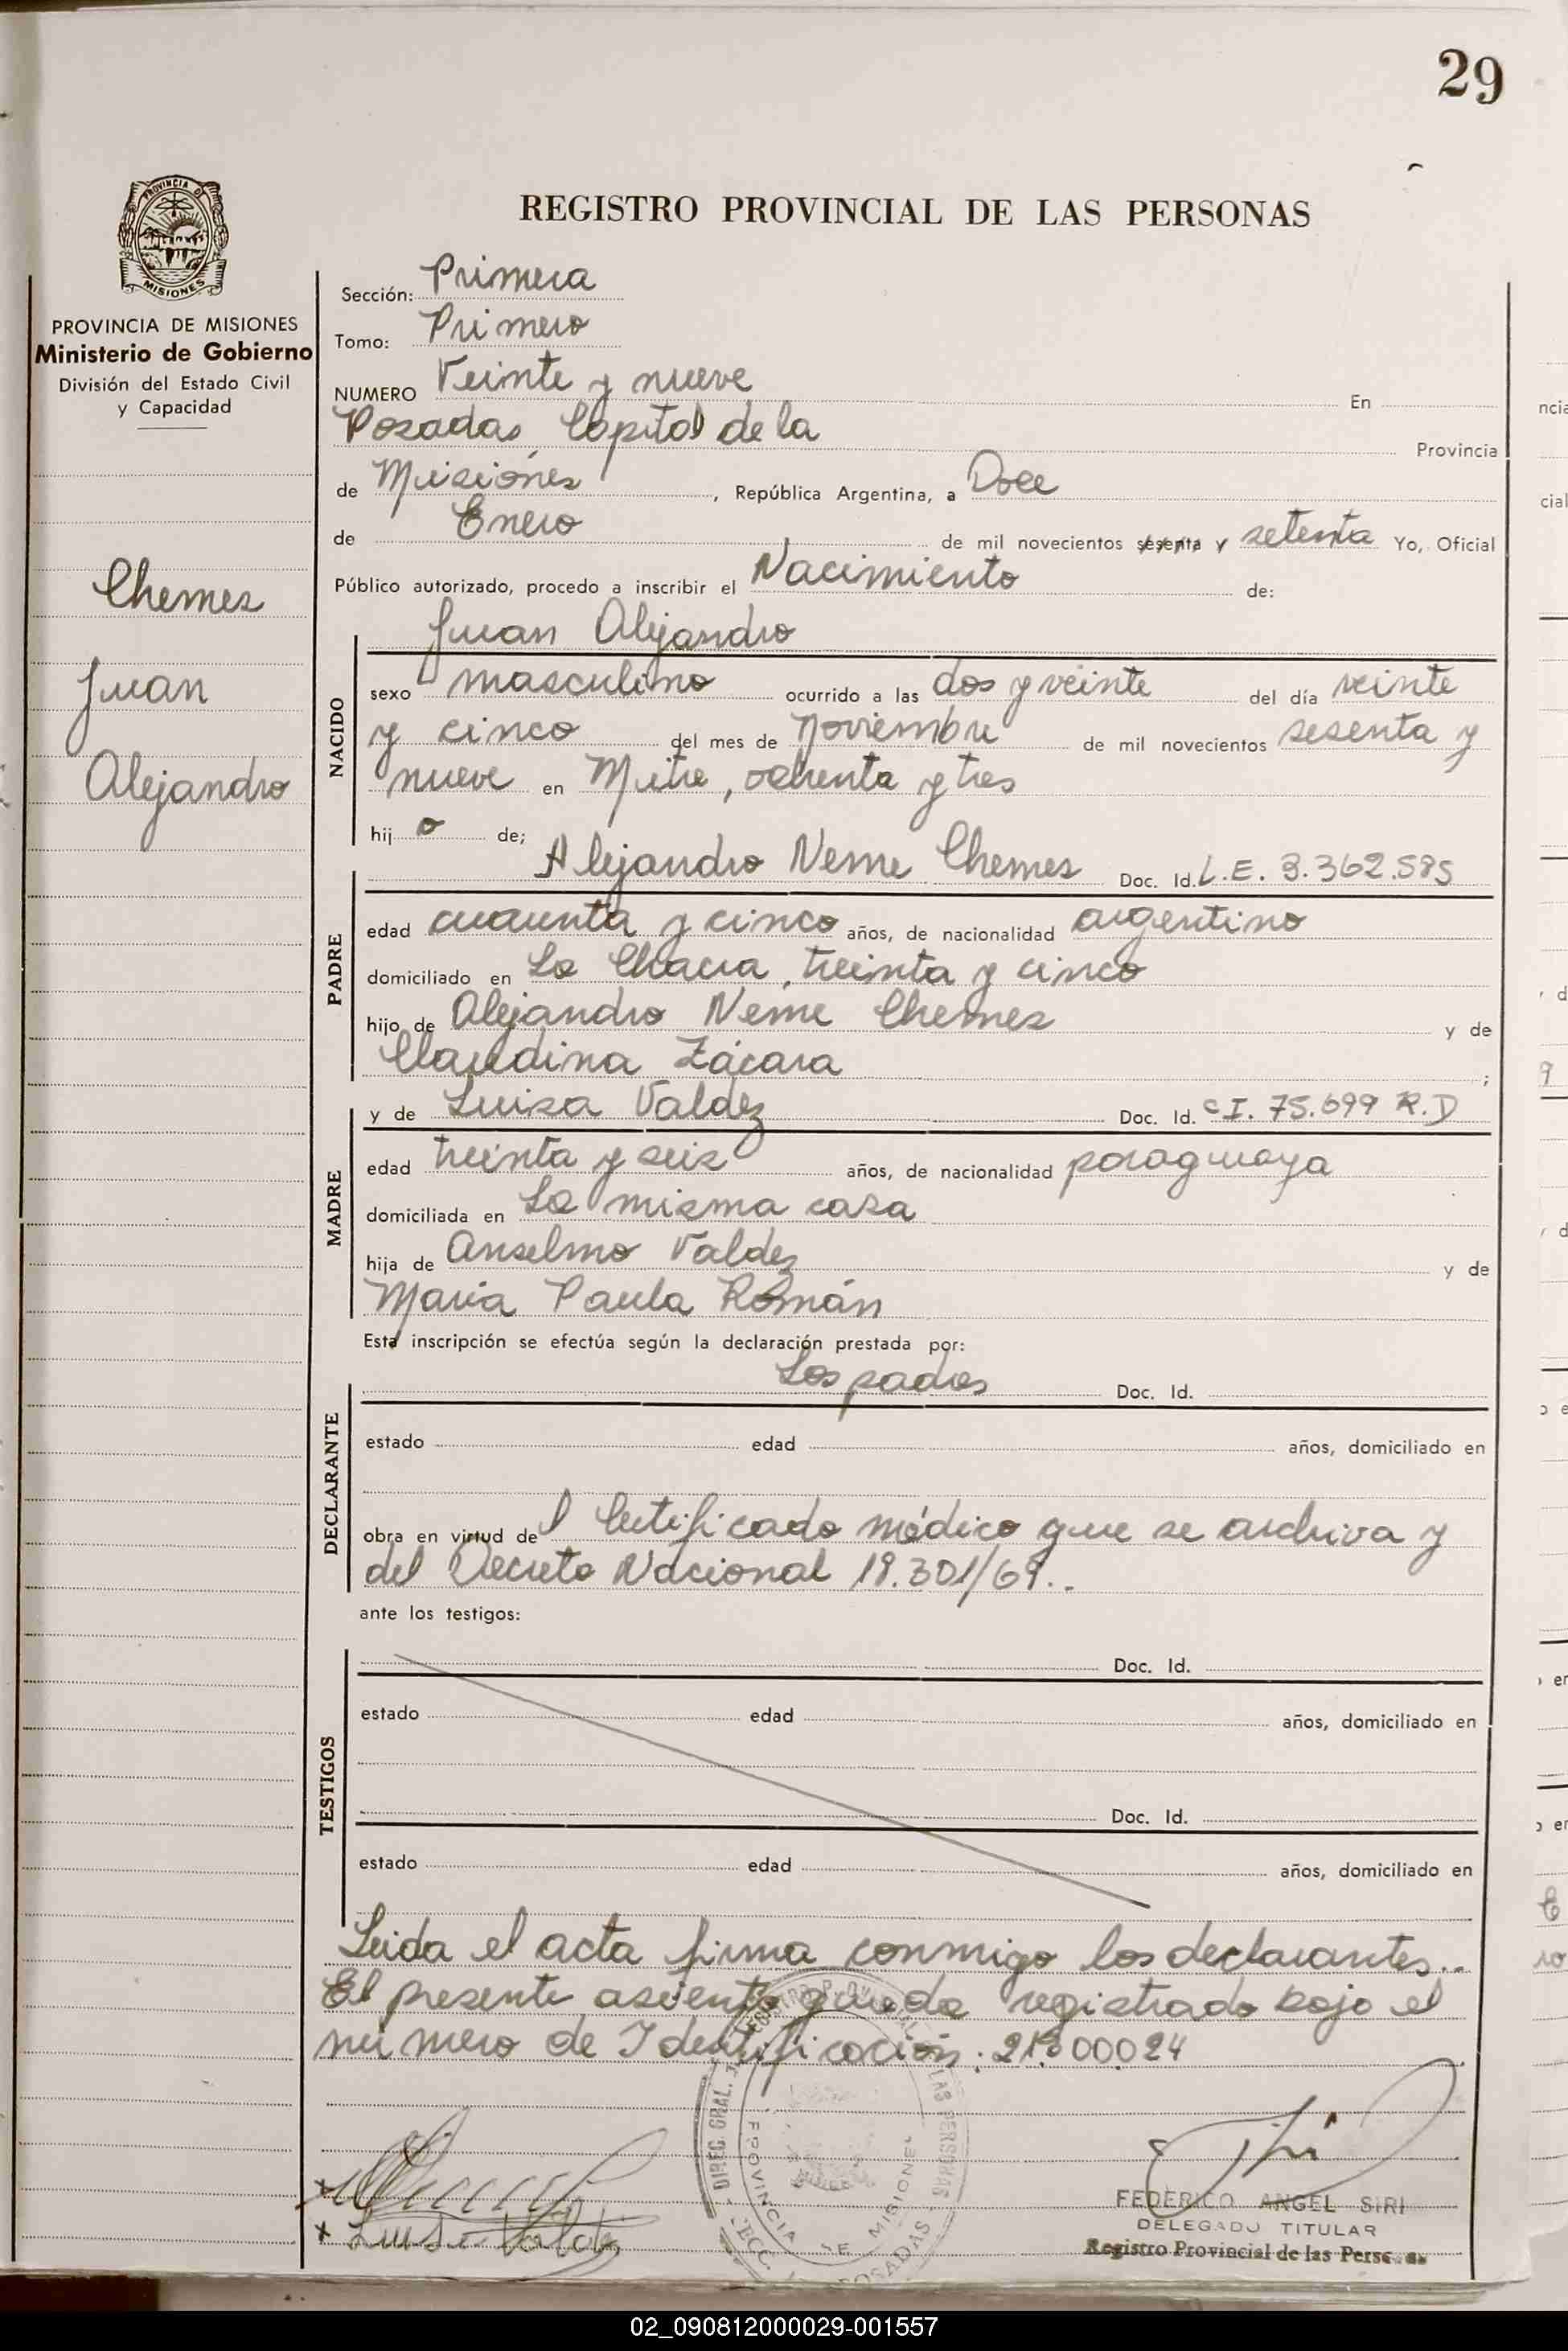 29
PROVINCIA DE MISIONES
Ministerio de Gobierno
División del Estado Civil
y Capacidad
Chemes
Juan
Alejandro
REGISTRO PROVINCIAL DE LAS PERSONAS
Sección: Primera
Tomo: Primero
NUMERO Veinte y nueve En
Posadas, Capital de la Provincia
de Misiones, República Argentina, a Doce
de Enero de mil novecientos sesenta y setenta Yo, Oficial
Público autorizado, procedo a inscribir el Nacimiento de:
Juan Alejandro
NACIDO
sexo masculino ocurrido a las dos y veinte del día veinte
y cinco del mes de Noviembre de mil novecientos sesenta y
nueve en Mitre, ochenta y tres
hij o de;
Alejandro Neme Chemes Doc. Id. L.E. 3.362.585
PADRE
edad cuarenta y cinco años, de nacionalidad argentino
domiciliado en La Chacra, treinta y cinco
hijo de Alejandro Neme Chemes y de
Claudina Zácara ;
y de Luisa Valdez Doc. Id. CI. 75.699 R.D
MADRE
edad treinta y seis años, de nacionalidad paraguaya
domiciliada en La misma casa
hija de Anselmo Valdez y de
María Paula Román
Esta inscripción se efectúa según la declaración prestada por:
Los padres Doc. Id.
DECLARANTE
estado edad años, domiciliado en
obra en virtud del Certificado médico que se archiva y
del Decreto Nacional 18.301/69..
ante los testigos:
Doc. Id.
TESTIGOS
estado edad años, domiciliado en
Doc. Id.
estado edad años, domiciliado en
Leida el acta firma conmigo los declarantes..
El presente asiento queda registrado bajo el
numero de Identificación: 21300024
x
x Luisa Valdez
FEDERICO ANGEL SIRI
DELEGADO TITULAR
Registro Provincial de las Personas
02_090812000029-001557